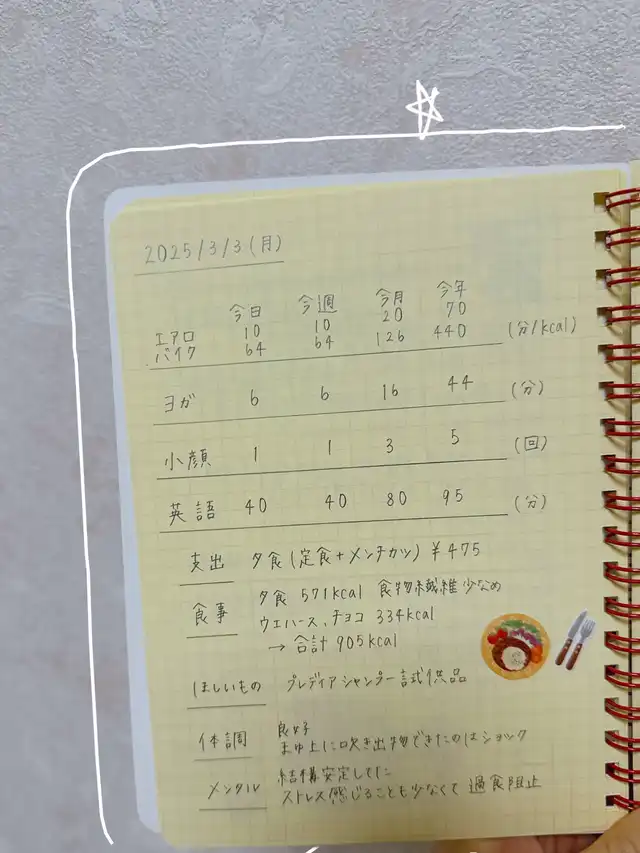 2025/3/3(月)
今日 今週 今月 今年
エアロバイク 10 10 20 70
64 64 126 440 (分/kcal)
ヨガ 6 6 16 44 (分)
小顔 1 1 3 5 (回)
英語 40 40 80 95 (分)
支出 夕食(定食+メンチカツ) ¥475
食事 夕食 571kcal 食物繊維少なめ
ウエハース、チョコ 334kcal
→ 合計 905kcal
ほしいもの プレディアシャンプー試供品
体調 良好
まゆ上に吹き出物できたのはショック
メンタル 結構安定してた
ストレス感じることも少なくて 過食阻止